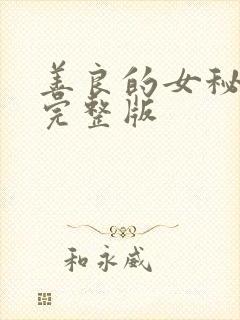 善良的女秘
完整版
和永威